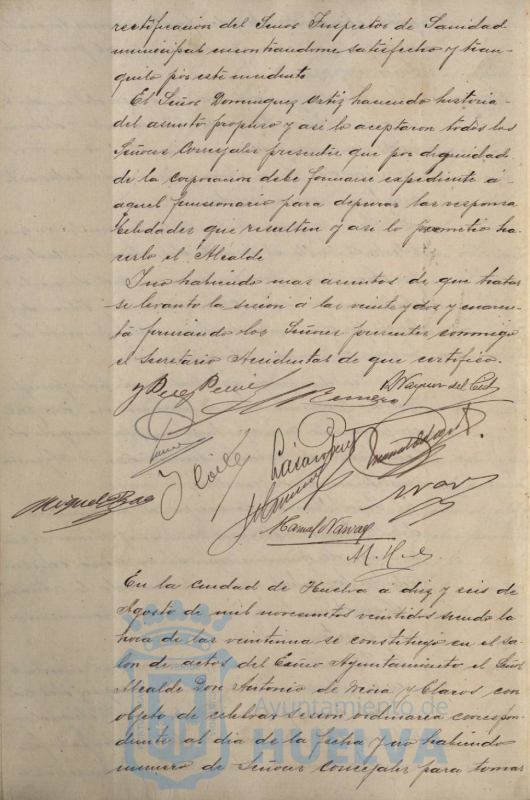 rectificacion del Señor Inspector de Sanidad
municipal encontrandome satisfecho y tran-
quilo por este incidente
El Señor Dominguez Ortiz haciendo historia
del asunto propuso y asi lo aceptaron todos los
Señores Concejales presentes que por dignidad
de la corporacion debe formarse expediente á
aquel funcionario para depurar las responsa
bilidades que resulten y asi lo prometio ha-
cerlo el Alcalde
I no habiendo mas asuntos de que tratar
se levanto la sesion á las veinte y dos y cuaren-
ta firmando los Señores presentes conmigo
el Secretario Accidental de que certifico.
Romero
Miguel Bao
Manuel Narvaez
En la Ciudad de Huelva á diez y seis de
Agosto de mil novecientos veintidos siendo la
hora de las veintiuna se constituyo en el sa-
lon de actos del Exmo Ayuntamiento el Señor
Alcalde Don Antonio de Mora y Claros con
objeto de celebrar sesion ordinaria correspon-
diente al dia de la fecha y no habiendo
numero de Señores Concejales para tomar
Ayuntamiento de
HUELVA